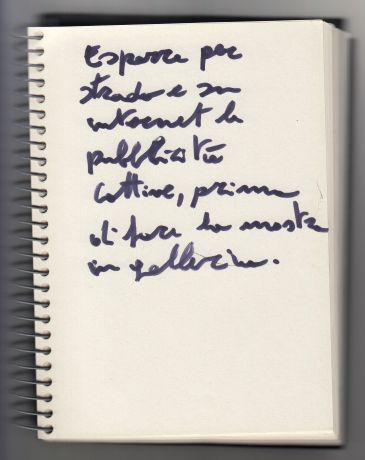 Esporre per
strada e su
internet le
pubblicità
cattive, prima
di fare la mostra
in galleria.